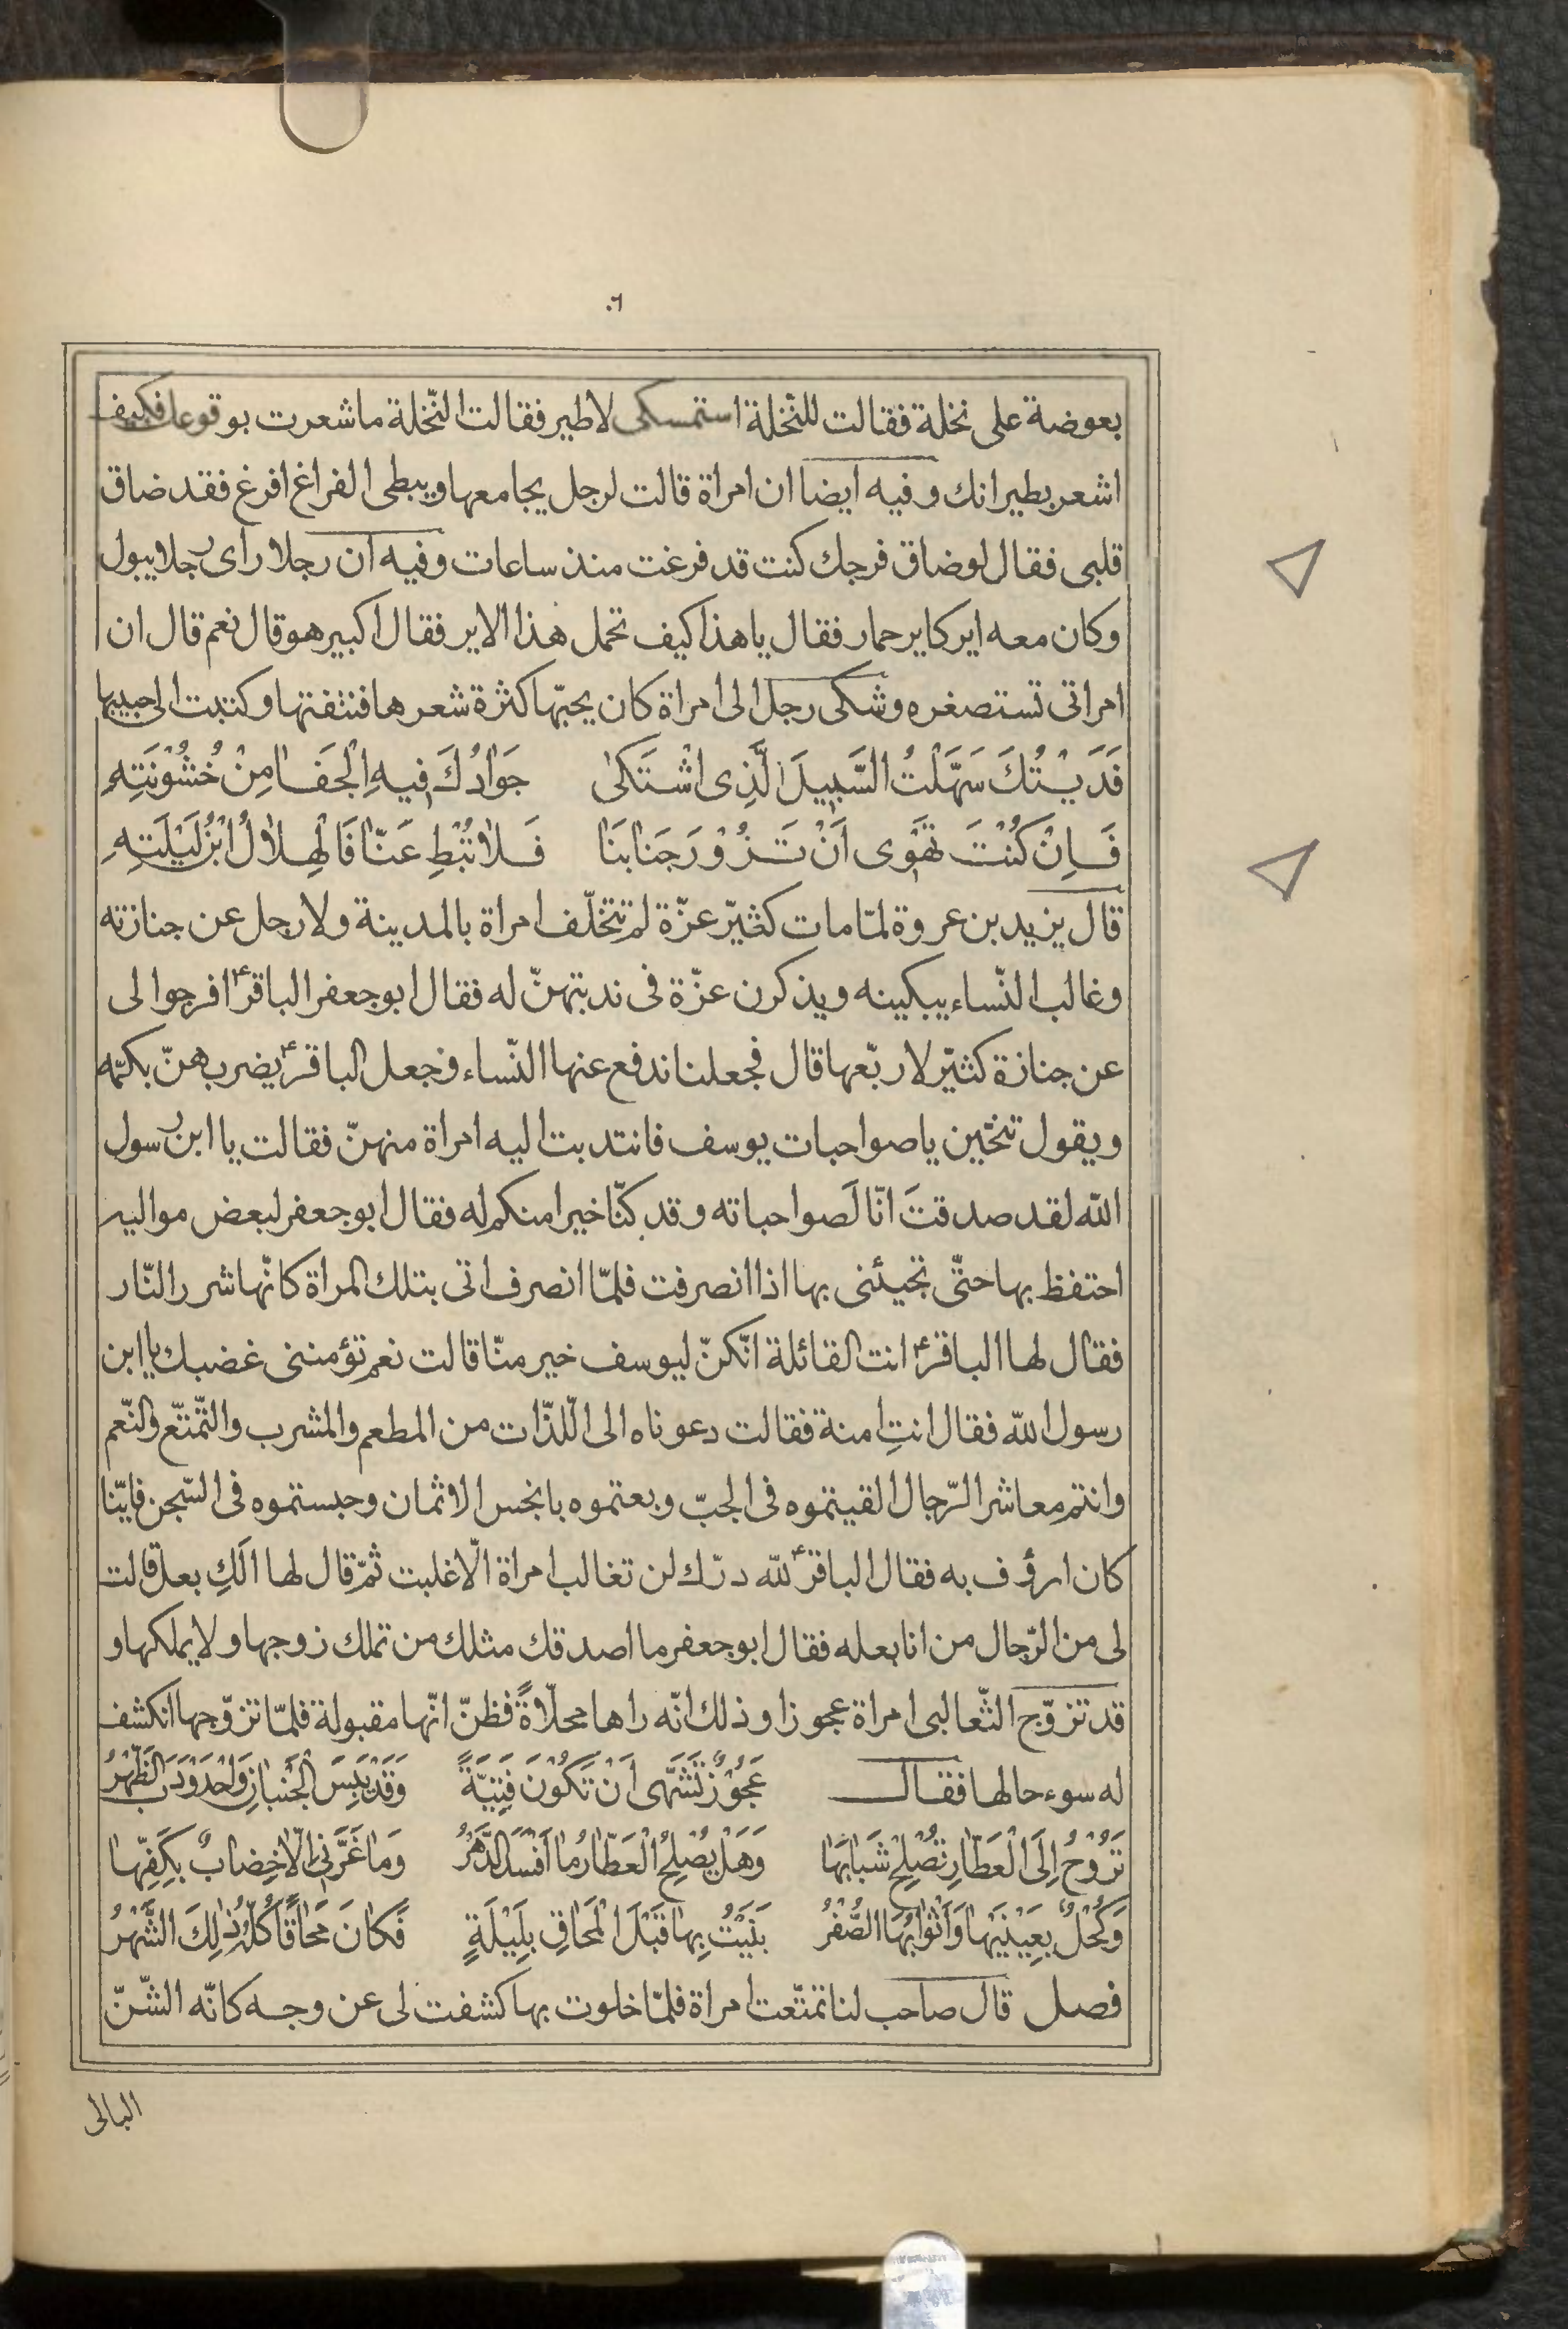 ٦٠
بعوضة على نخلة فقالت للنّخلة استمسكى لاطير فقالت النّخلة ماشعرت بوقوعك فكيف
اشعر بطيرانك وفيه ايضا ان امراة قالت لرجل يجامعها ويبطى الفراغ افرغ فقد ضاق
قلبى فقال لوضاق فرجك كنت قد فرغت منذ ساعات وفيه ان رجلا راى رجلا يبول
وكان معه اير كاير حمار فقال ياهذا كيف تحمل هذا الاير فقال اكبير هو قال نعم قال ان
امراتى تستصغره وشكى رجل الى امراة كان يحبّها كثرة شعرها فنتفتها وكتبت الى حبيبها
فَدَيْتُكَ سَهَّلْتُ السَّبِيلَ الَّذِى اشْتَكىٰ جَوٰادُكَ فِيهِ الْجَفٰا مِنْ خُشُوْنَتِهِ
فَاِنْ كُنْتَ تَهْوٰى اَنْ تَزُوْرَ جَنٰابَنٰا فَلاٰ تُبْطِ عَنّٰا فَالْهِلاٰلُ ابْنُ لَيْلَتِهِ
قال يزيد بن عروة لمّا مات كثيّر عزّة لم تتخلّف امراة بالمدينة ولا رجل عن جنازته
وغالب النّساء يبكينه ويذكرن عزّة فى ندبتهنّ له فقال ابو جعفر الباقرؑ افرجوا لى
عن جنازة كثيّر لاربّعها قال فجعلنا ندفع عنها النّساء وجعل الباقرؑ يضربهنّ بكمّه
ويقول تنحّين يا صواحبات يوسف فانتدبت اليه امراة منهنّ فقالت يا ابن رسول
الله لقد صدقتَ انّا لَصواحباته وقد كنّا خيرا منكم له فقال ابو جعفر لبعض مواليه
احتفظ بها حتّى تجيئنى بها اذا انصرفت فلمّا انصرف اتى بتلك المراة كانّها شرر النّار
فقال لها الباقرؑ انت القائلة انّكنّ ليوسف خير منّا قالت نعم تؤمننى غضبك يا ابن
رسول الله فقال انتِ امنة فقالت دعوناه الى اللّذّات من المطعم والمشرب والتّمتّع والنّعم
وانتم معاشر الرّجال القيتموه فى الجبّ وبعتموه بابخس الاثمان وحبستموه فى السّجن فايّنا
كان ارؤف به فقال الباقرؑ لله درّك لن تغالب امراة الّا غلبت ثمّ قال لها الَكِ بعل قالت
لى من الرّجال من انا بعله فقال ابو جعفر ما اصدقك مثلك من تملك زوجها ولا يملكها و
قد تزوّج الثّعالبى امراة عجوزا وذلك انّه راها محلّاةً فظنّ انّها مقبولة فلمّا تزوّجها انكشف
له سوء حالها فقال عَجُوْزٌ تَشَهّٰى اَنْ تَكُوْنَ فَتِيَّةً وَقَدْ يَبِسَ الْجَنْبٰانِ وَاحْدَوْدَبَ الظَّهْرُ
تَرُوْحُ اِلَى الْعَطّٰارِ تُصْلِحُ شَبٰابَهٰا وَهَلْ يُصْلِحُ الْعَطّٰارُ مٰا اَفْسَدَ الدَّهْرُ وَمٰا غَرَّنِى اِلّاٰ خِضٰابٌ بِكَفِّهٰا
وَكُحْلٌ بِعَيْنَيْهٰا وَاَثْوٰابُهَا الصُّفْرُ بَنَيْتُ بِهٰا قَبْلَ الْمَحٰاقِ بِلَيْلَةٍ فَكٰانَ مَحٰاقًا كُلُّهُ ذٰلِكَ الشَّهْرُ
فصل قال صاحب لنا تمتّعت امراة فلمّا خلوت بها كشفت لى عن وجه كانّه الشّنّ
البالى